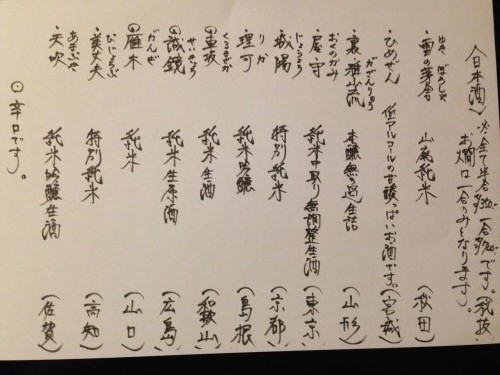 〈日本酒〉※全て半合 一合 です。(税抜
お燗は一合のみとなります)。
ゆき ぼうしゃ
・雪の芽舎 山廃純米 (秋田)
・ひめぜん 低アルコールの甘酸っぱいお酒です。(宮城)
がさんりゅう
・裏雅山流 本醸無ろ過生詰 (山形)
おくのかみ
・屋守 純米中取り無調整生酒 (東京)
じょうよう
・城陽 特別純米 (京都)
りか
・理可 純米吟醸 (島根)
くるまざか
⦿車坂 純米生酒 (和歌山)
せいきょう
⦿誠鏡 純米生原酒 (広島)
がんぎ
⦿雁木 純米 (山口)
びじょうふ
・美丈夫 特別純米 (高知)
あまぶき
・天吹 純米吟醸生酒 (佐賀)
⦿辛口です。